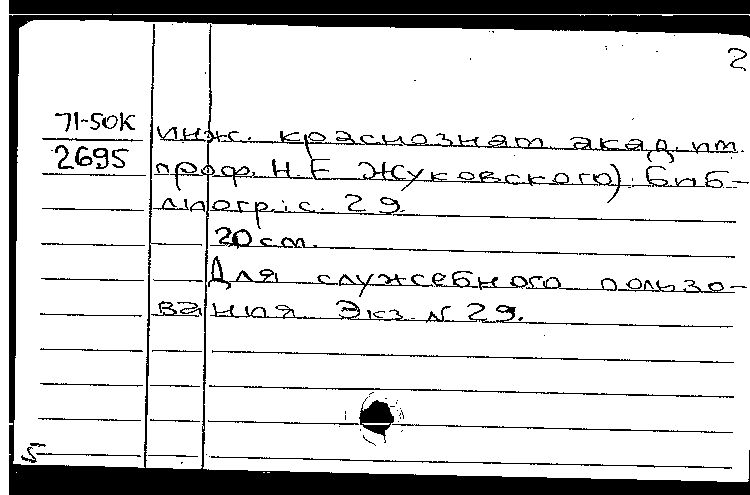 2
71-50К
2695
инж. краснознам акад. им.
проф. Н. Е Жуковского). Биб-
лиогр.: с. 29.
20 см.
Для служебного пользо-
вания. Экз. N 29.
5